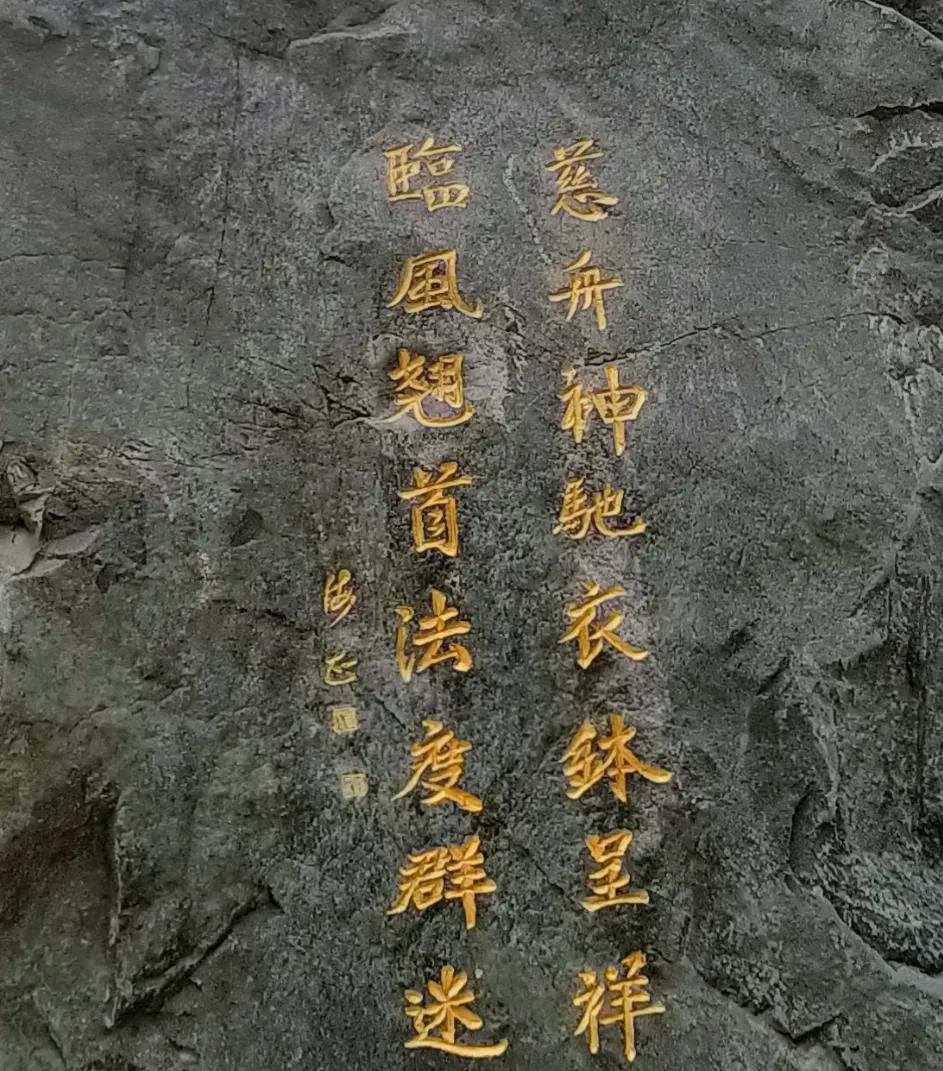 慈舟神馳衣鉢呈祥
臨風翹首法度群迷
海正